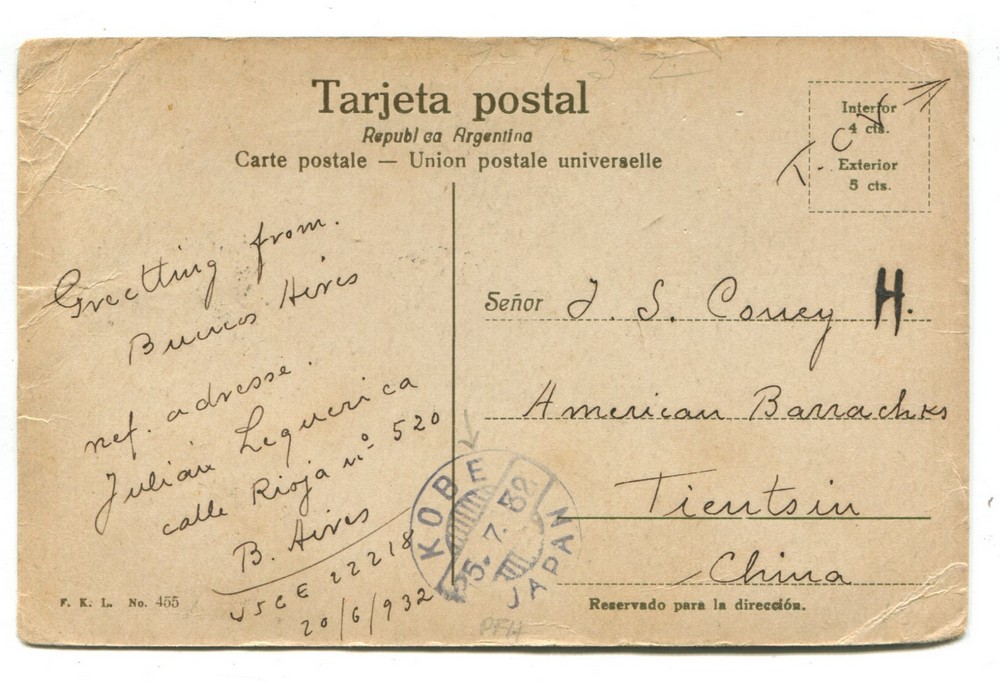 Tarjeta postal
Republica Argentina
Carte postale — Union postale universelle
Interior
4 cts.
Exterior
5 cts.
T.C.V
Greetting from.
Buenos Aires
nef. adresse.
Julián Lequerica
calle Rioja nº 520
B. Aires
22218
20/6/932
Señor J. S. Coney H.
American Barrachks
Tientsin
China
Reservado para la dirección.
KOBE
25.7.32
JAPAN
F. K. L. No. 455
PFH